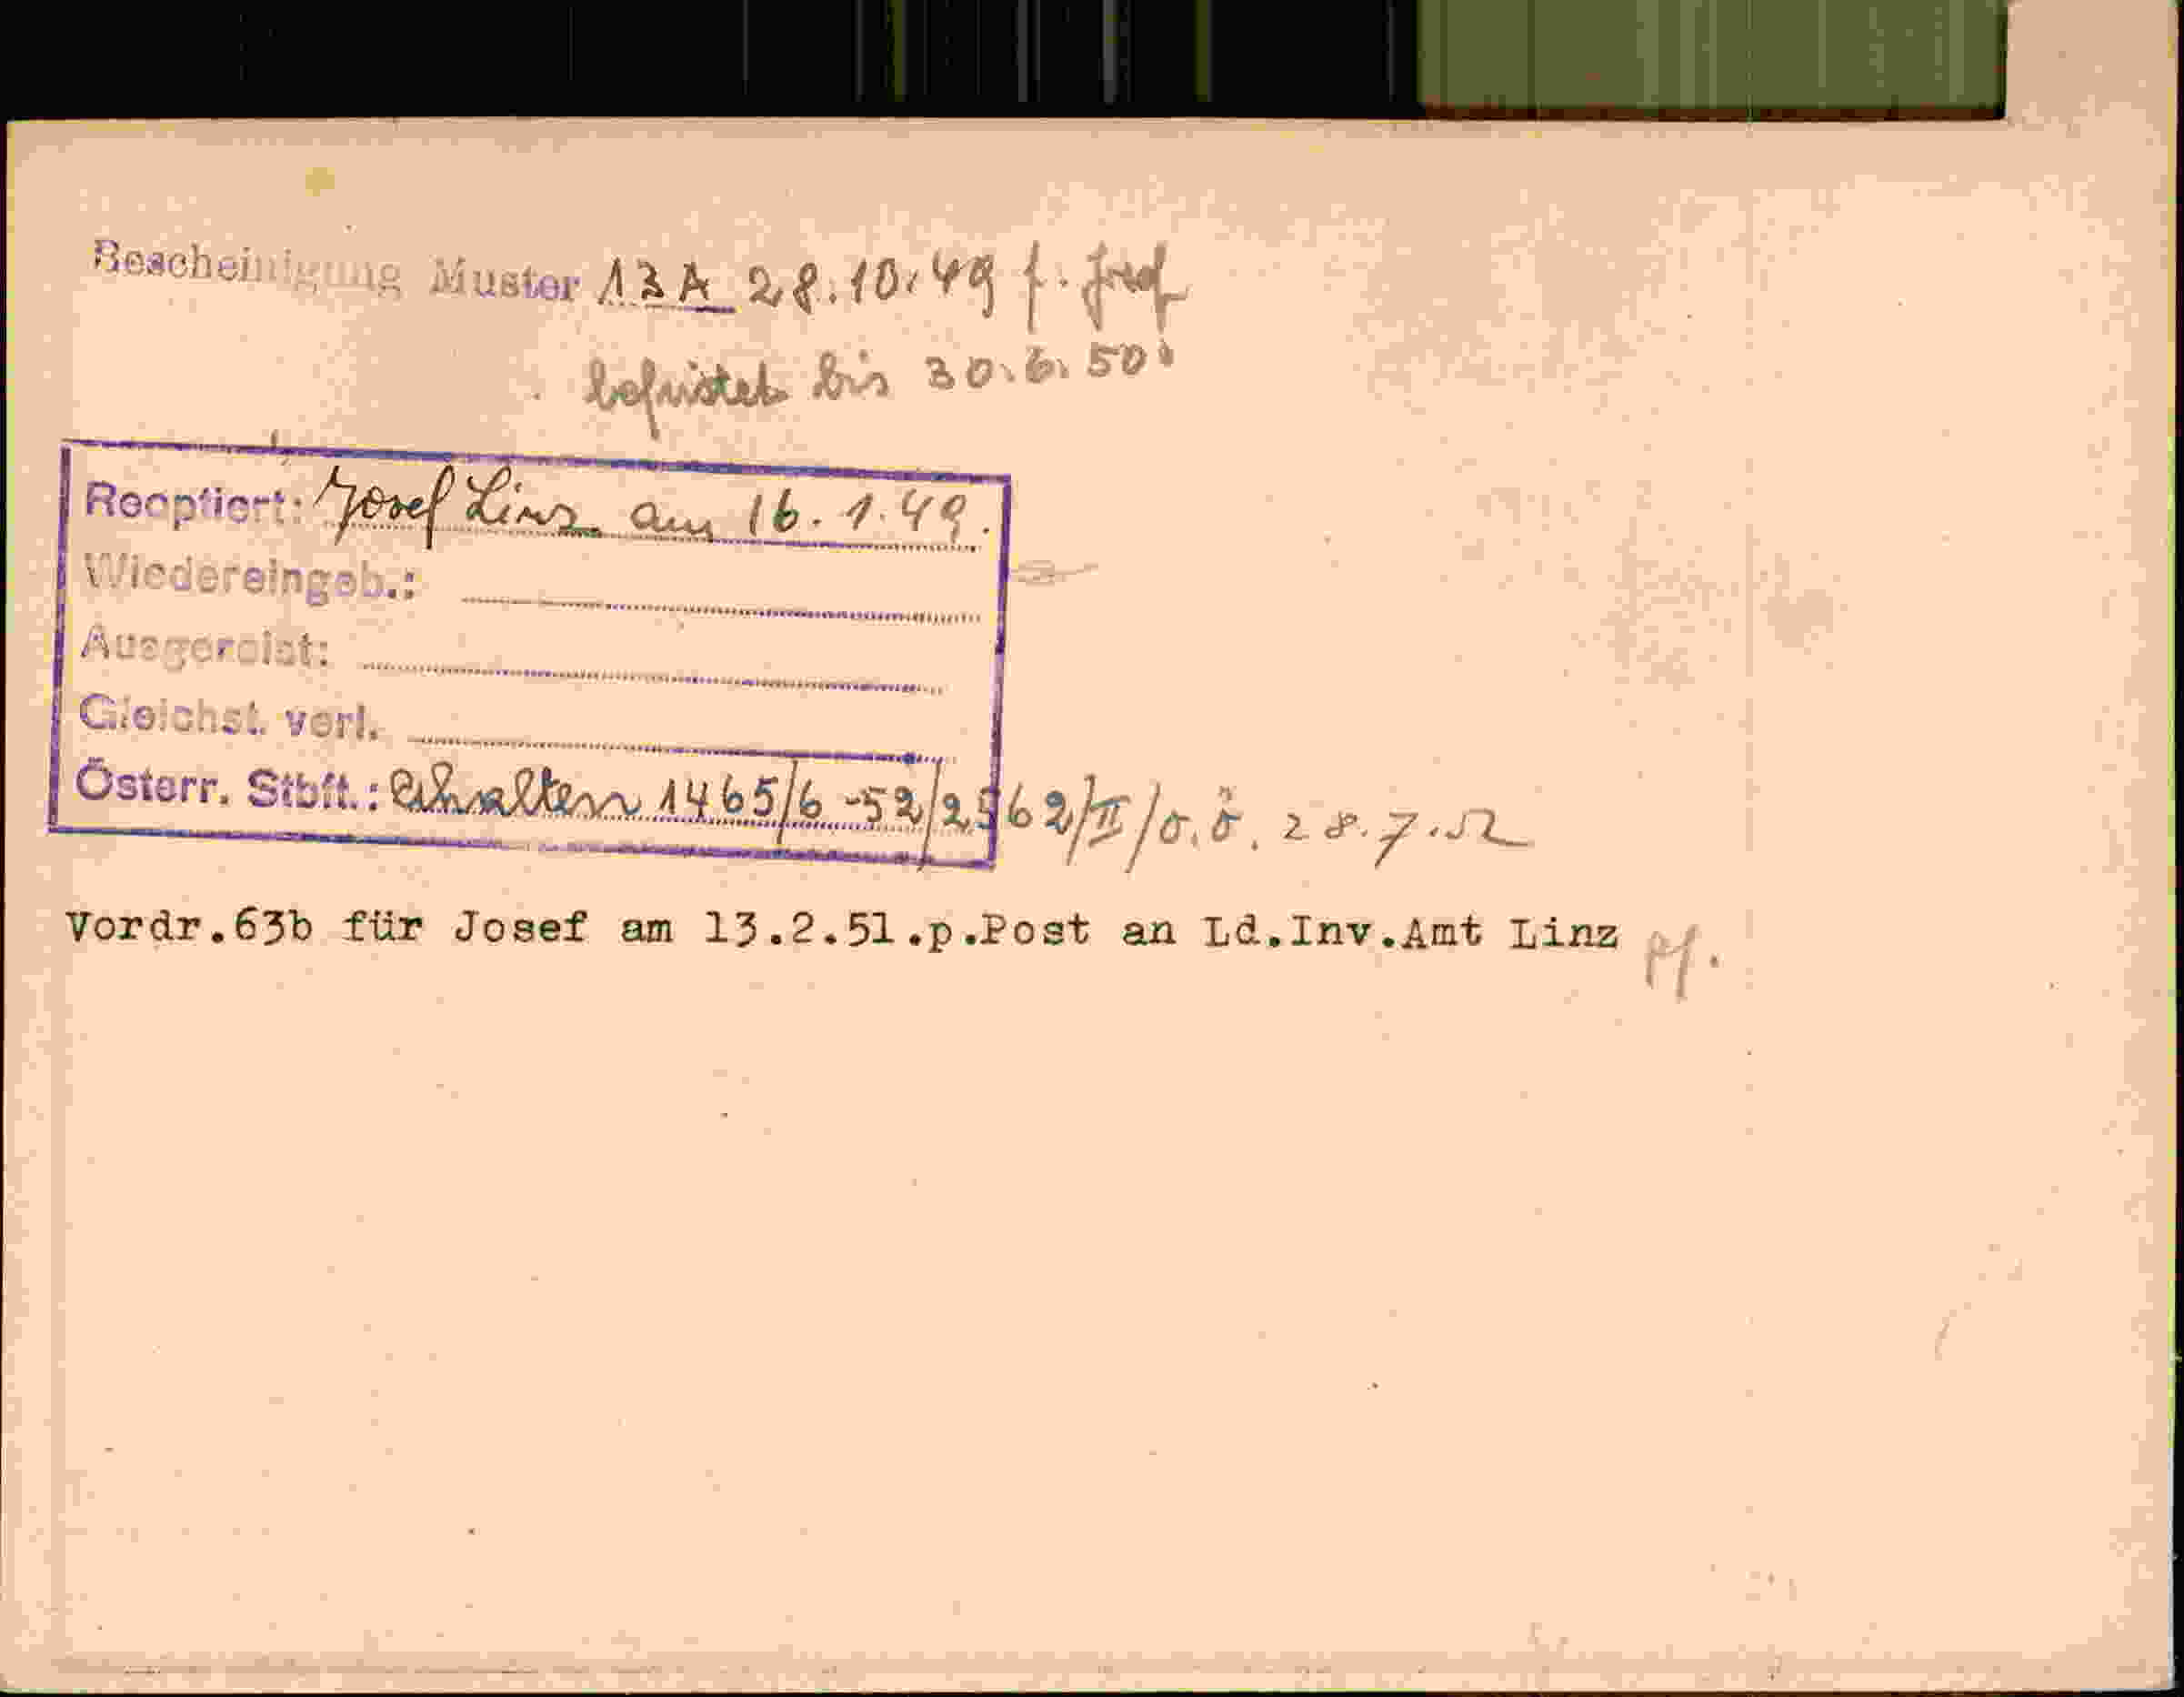 Bescheinigung Muster 13A 28.10.49 f. Josef
befristet bis 30.6.50
Reoptiert: Josef Linz am 16.1.49.
Wiedereingeb.:
Ausgereist:
Gleichst. verl.
Österr. Stbft.: Erhalten 1465/6-52/2562/II/o.ö. 28.7.52
Vordr.63b für Josef am 13.2.51.p.Post an Ld.Inv.Amt Linz